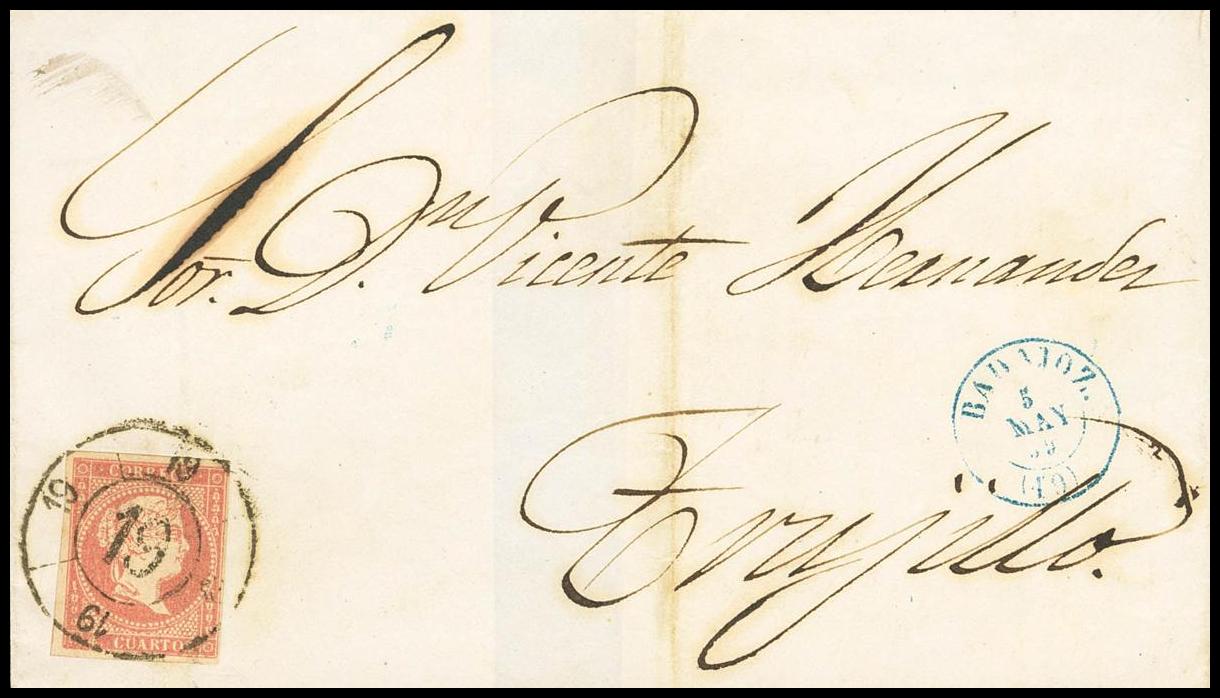 Sor. Dn Vicente Hernandez
Trujillo.
BADAJOZ.
5
MAY
(19)
19
19
19
19
CORREOS
CUARTOS